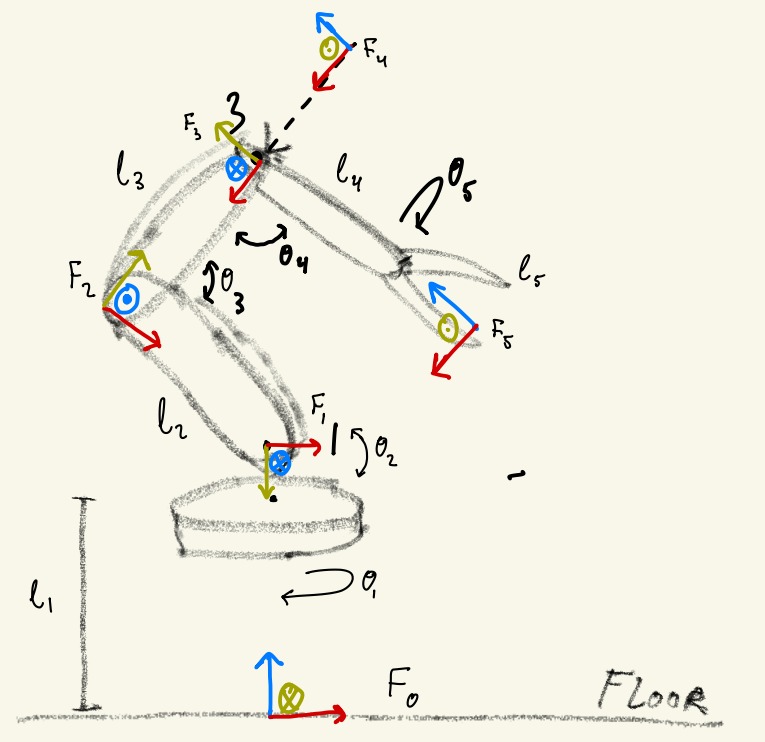 F₄
3
F₃
l₃
l₄
θ₅
θ₄
F₂
θ₃
l₅
F₅
l₂
F₁
1
θ₂
l₁
θ₁
F₀
FLOOR